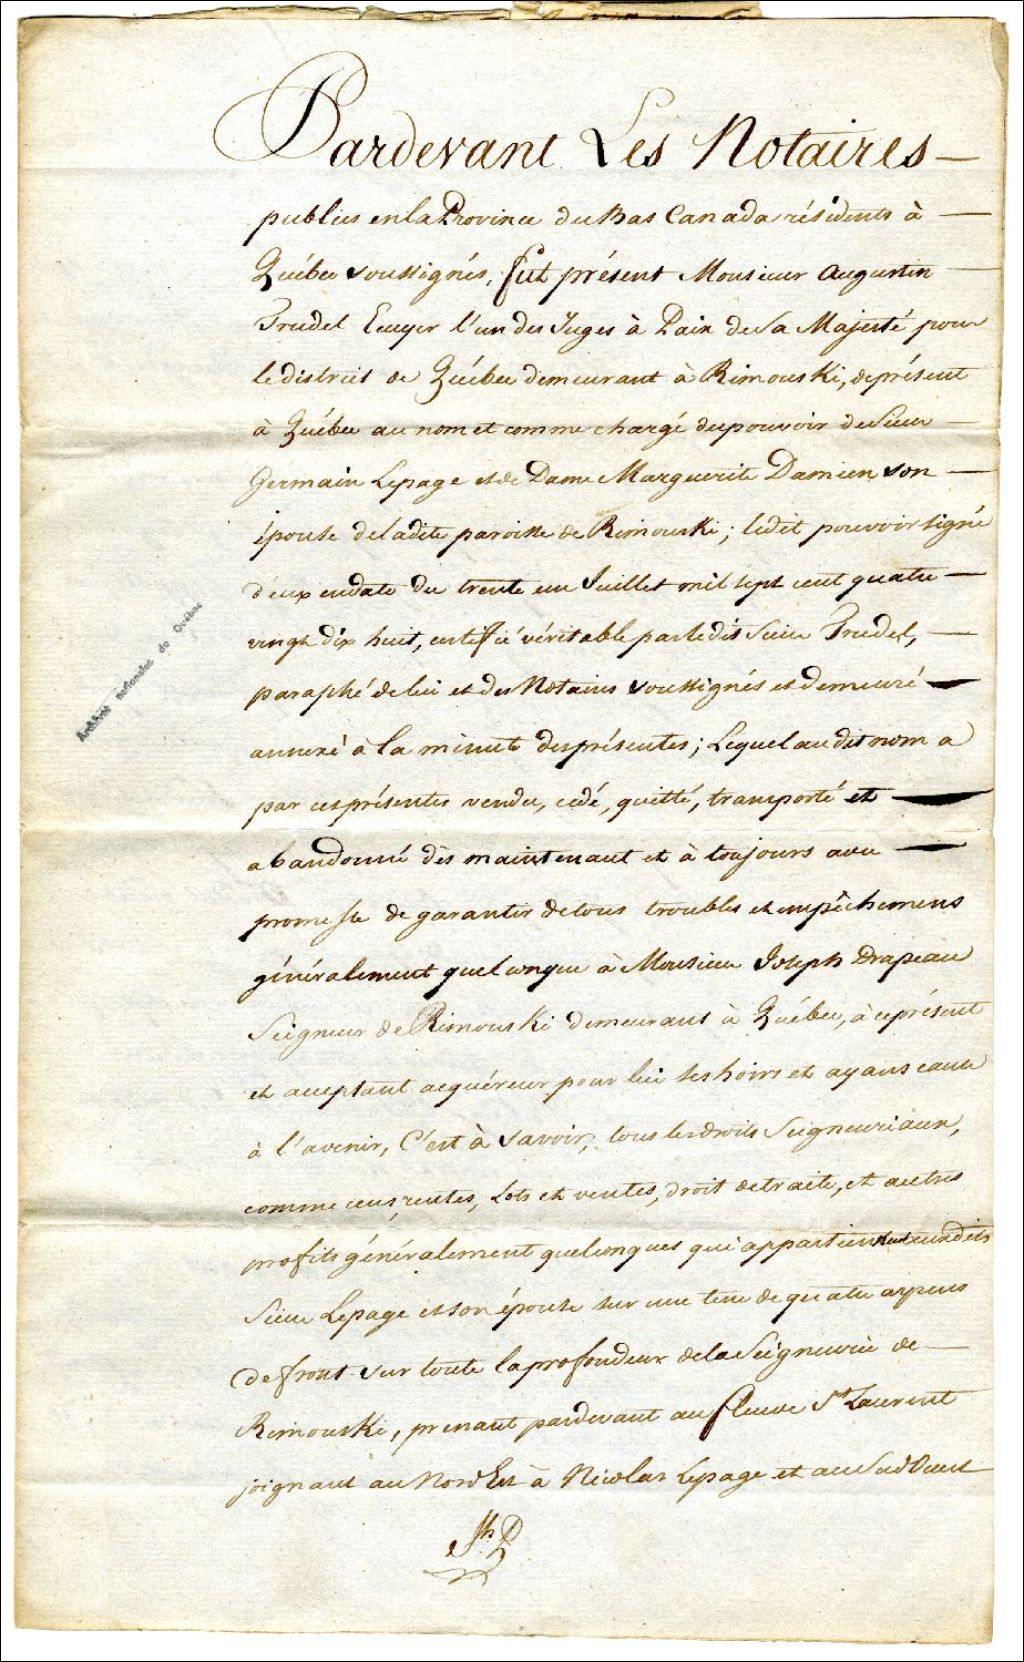 Pardevant Les Notaires —
publics en la Province du Bas Canada résidents à —
Québec soussignés, fut présent Monsieur Augustin —
Trudel Ecuyer l'un des Juges à Paix de Sa Majesté pour
le district de Québec demeurant à Rimouski, de présent
à Québec au nom et comme chargé du pouvoir de Sieur —
Germain Lepage et de Dame Marguerite Damien son —
épouse de ladite paroisse de Rimouski; ledit pouvoir signé
d'eux en date du trente un Juillet mil sept cent quatre —
vingt dix huit, certifié véritable par le dit Sieur Trudel, —
paraphé de lui et des Notaires soussignés et demeuré —
annexé à la minute des présentes; Lequel au dit nom a
par ces présentes vendu, cédé, quitté, transporté et —
abandonné dès maintenant et à toujours avec —
promesse de garantir de tous troubles et empêchemens
généralement quelconque à Monsieur Joseph Drapeau
Seigneur de Rimouski demeurant à Québec, à ce présent
et acceptant acquéreur pour lui ses hoirs et ayans cause
à l'avenir, C'est à savoir; tous les droits Seigneuriaux,
comme cens, rentes, Lots et ventes, droit de traite, et autres
profits généralement quelconques qui appartiennent auxdits
Sieur Lepage et son épouse sur une terre de quatre arpens
de front sur toute la profondeur de la Seigneurie de —
Rimouski, prenant pardevant au fleuve St Laurent
joignant au Nord Est à Nicolas Lepage et au Sud Ouest
Jh D
Archives nationales de Québec